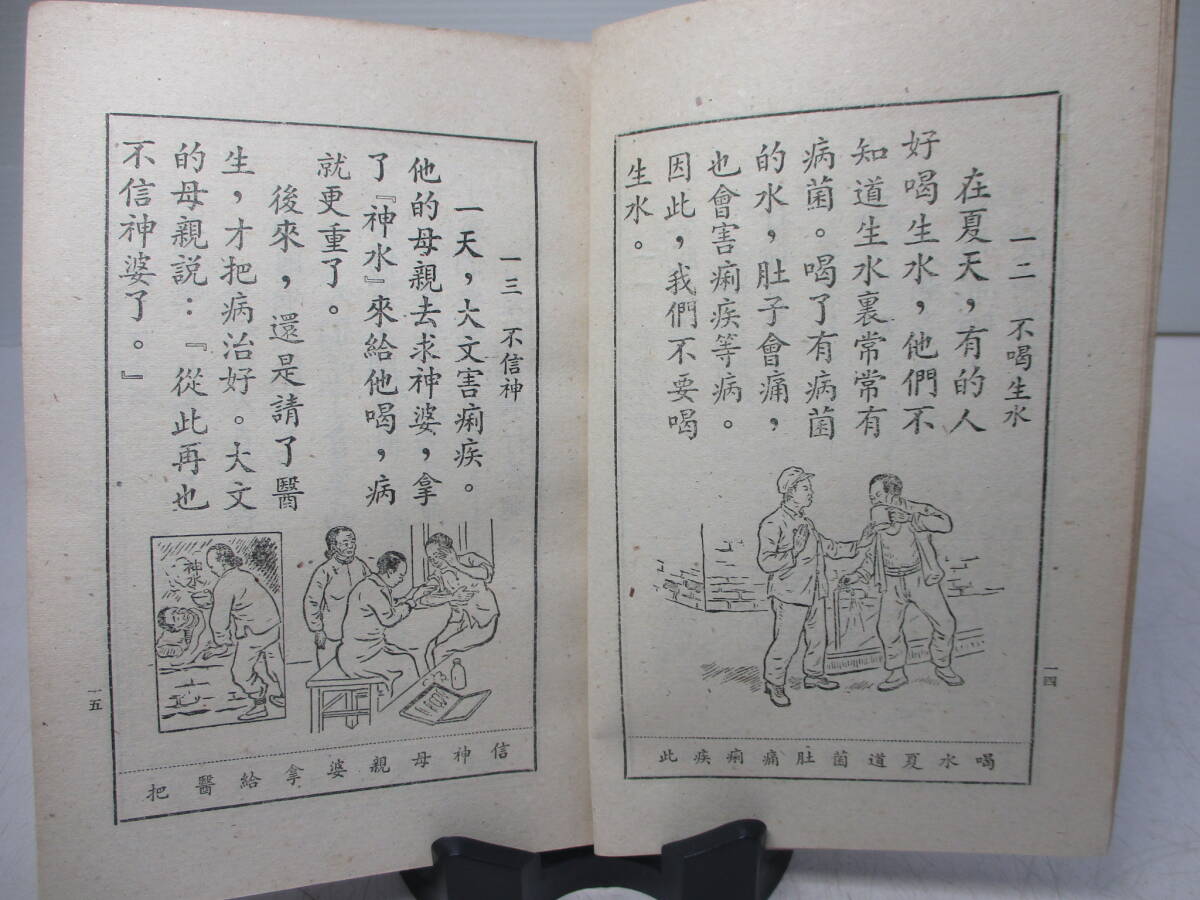 一二　不喝生水
在夏天，有的人
好喝生水，他們不
知道生水裏常常有
病菌。喝了有病菌
的水，肚子會痛，
也會害痢疾等病。
因此，我們不要喝
生水。
喝水夏道菌肚痛痢疾此
一四
一三　不信神
一天，大文害痢疾。
他的母親去求神婆，拿
了『神水』來給他喝，病
就更重了。
後來，還是請了醫
生，才把病治好。大文
的母親説：『從此再也
不信神婆了。』
神水
信神母親婆拿給醫把
一五